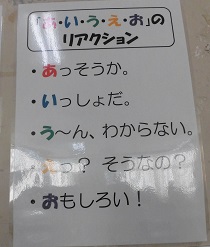 「あ・い・う・え・お」の
リアクション
・あっそうか。
・いっしょだ。
・う～ん、わからない。
・えっ？ そうなの？
・おもしろい！